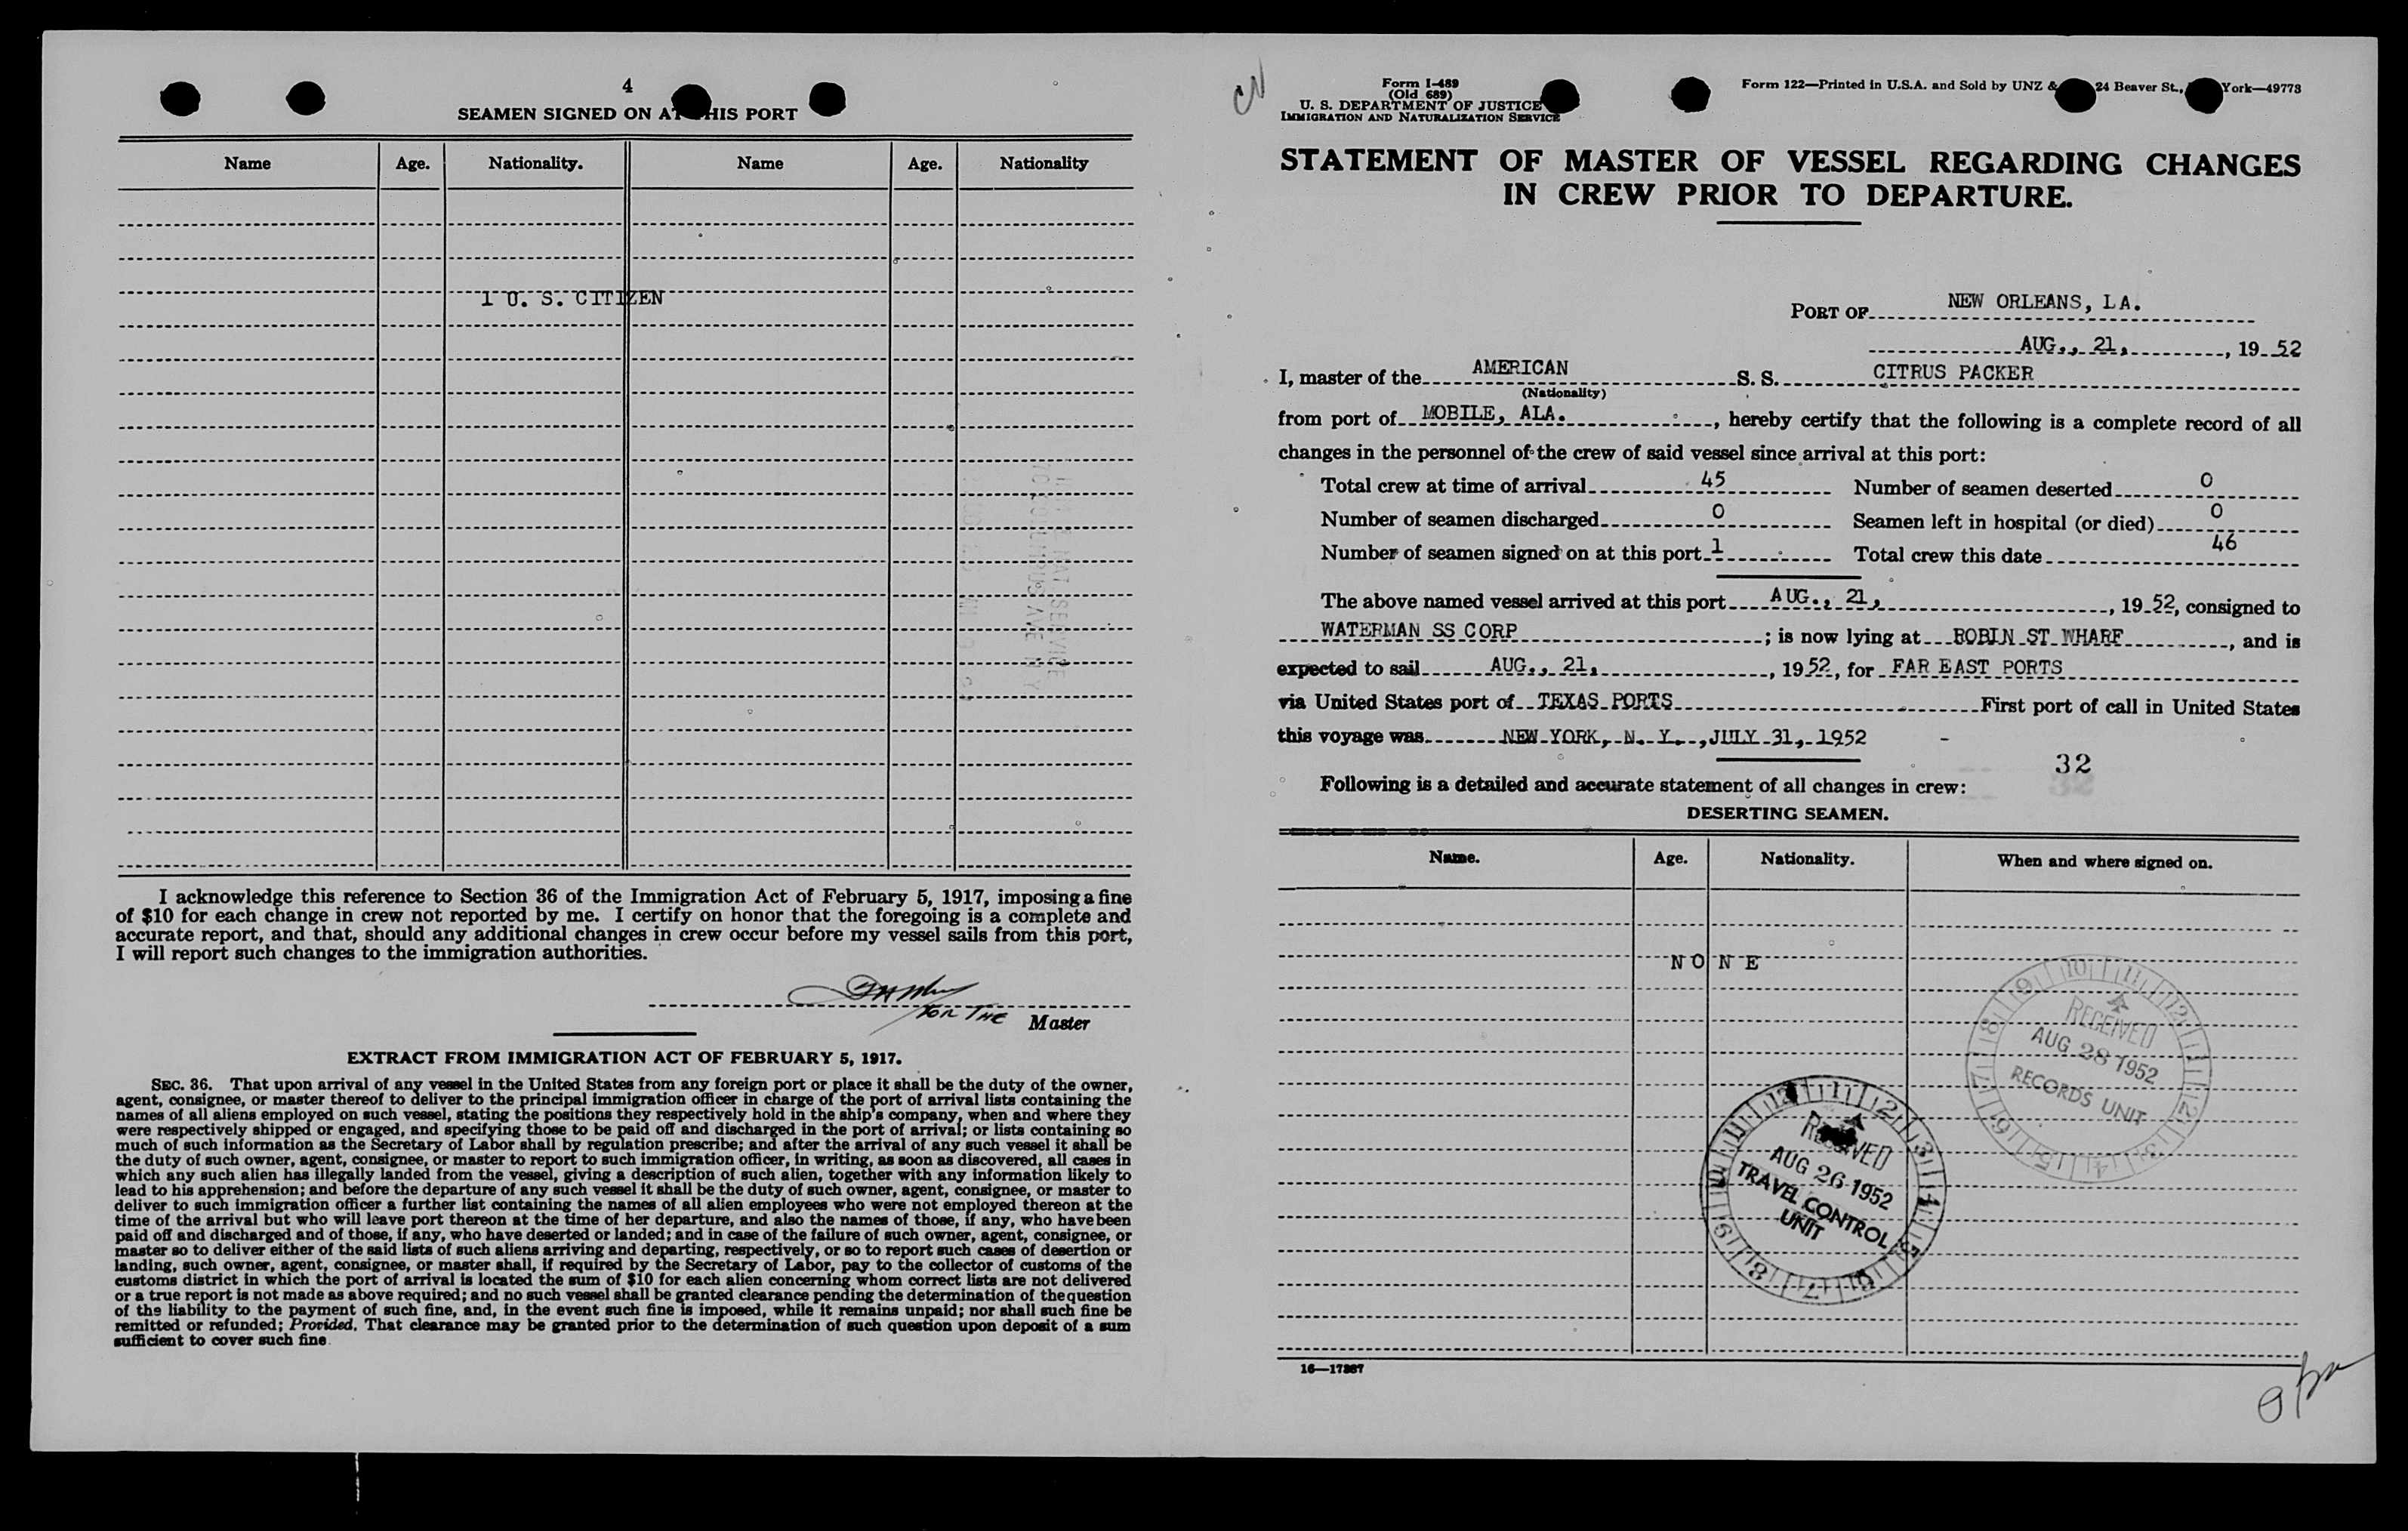 4
SEAMEN SIGNED ON AT THIS PORT
Name Age. Nationality. Name Age. Nationality
1 U. S. CITIZEN
I acknowledge this reference to Section 36 of the Immigration Act of February 5, 1917, imposing a fine
of $10 for each change in crew not reported by me. I certify on honor that the foregoing is a complete and
accurate report, and that, should any additional changes in crew occur before my vessel sails from this port,
I will report such changes to the immigration authorities.
FOR THE Master
EXTRACT FROM IMMIGRATION ACT OF FEBRUARY 5, 1917.
SEC. 36. That upon arrival of any vessel in the United States from any foreign port or place it shall be the duty of the owner,
agent, consignee, or master thereof to deliver to the principal immigration officer in charge of the port of arrival lists containing the
names of all aliens employed on such vessel, stating the positions they respectively hold in the ship's company, when and where they
were respectively shipped or engaged, and specifying those to be paid off and discharged in the port of arrival; or lists containing so
much of such information as the Secretary of Labor shall by regulation prescribe; and after the arrival of any such vessel it shall be
the duty of such owner, agent, consignee, or master to report to such immigration officer, in writing, as soon as discovered, all cases in
which any such alien has illegally landed from the vessel, giving a description of such alien, together with any information likely to
lead to his apprehension; and before the departure of any such vessel it shall be the duty of such owner, agent, consignee, or master to
deliver to such immigration officer a further list containing the names of all alien employees who were not employed thereon at the
time of the arrival but who will leave port thereon at the time of her departure, and also the names of those, if any, who have been
paid off and discharged and of those, if any, who have deserted or landed; and in case of the failure of such owner, agent, consignee, or
master so to deliver either of the said lists of such aliens arriving and departing, respectively, or so to report such cases of desertion or
landing, such owner, agent, consignee, or master shall, if required by the Secretary of Labor, pay to the collector of customs of the
customs district in which the port of arrival is located the sum of $10 for each alien concerning whom correct lists are not delivered
or a true report is not made as above required; and no such vessel shall be granted clearance pending the determination of the question
of the liability to the payment of such fine, and, in the event such fine is imposed, while it remains unpaid; nor shall such fine be
remitted or refunded; Provided, That clearance may be granted prior to the determination of such question upon deposit of a sum
sufficient to cover such fine.
Form I-489
(Old 689)
U. S. DEPARTMENT OF JUSTICE
IMMIGRATION AND NATURALIZATION SERVICE
Form 122—Printed in U.S.A. and Sold by UNZ & 24 Beaver St., York—49773
STATEMENT OF MASTER OF VESSEL REGARDING CHANGES
IN CREW PRIOR TO DEPARTURE.
PORT OF NEW ORLEANS, LA.
AUG., 21, , 19 52
I, master of the AMERICAN S. S. CITRUS PACKER
(Nationality)
from port of MOBILE, ALA. , hereby certify that the following is a complete record of all
changes in the personnel of the crew of said vessel since arrival at this port:
Total crew at time of arrival 45 Number of seamen deserted 0
Number of seamen discharged 0 Seamen left in hospital (or died) 0
Number of seamen signed on at this port 1 Total crew this date 46
The above named vessel arrived at this port AUG., 21, , 19 52, consigned to
WATERMAN SS CORP ; is now lying at ROBIN ST WHARF , and is
expected to sail AUG., 21, , 19 52, for FAR EAST PORTS
via United States port of TEXAS PORTS First port of call in United States
this voyage was NEW YORK, N. Y., JULY 31, 1952
32
Following is a detailed and accurate statement of all changes in crew:
DESERTING SEAMEN.
Name. Age. Nationality. When and where signed on.
N O N E
RECEIVED
AUG 28 1952
RECORDS UNIT
RECEIVED
AUG 26 1952
TRAVEL CONTROL
UNIT
16—17887